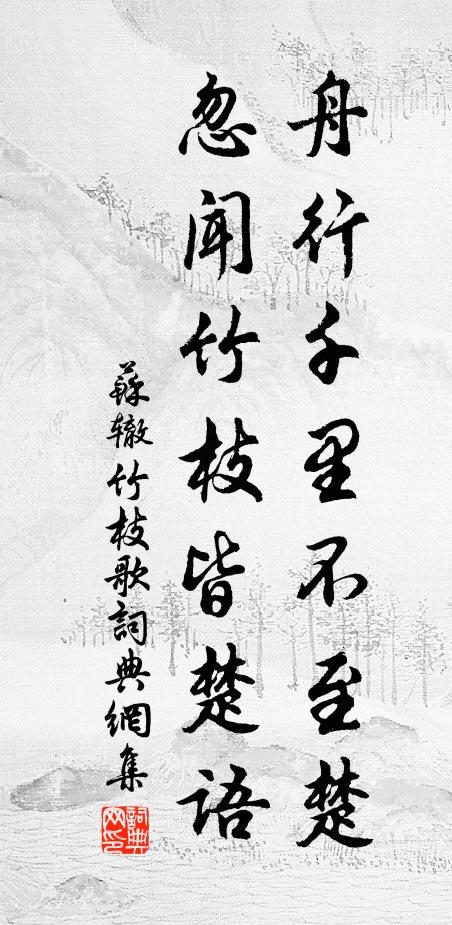 舟行千里不至楚
忽闻竹枝皆楚語
蘇辙竹枝歌詞典網集
詞典网印